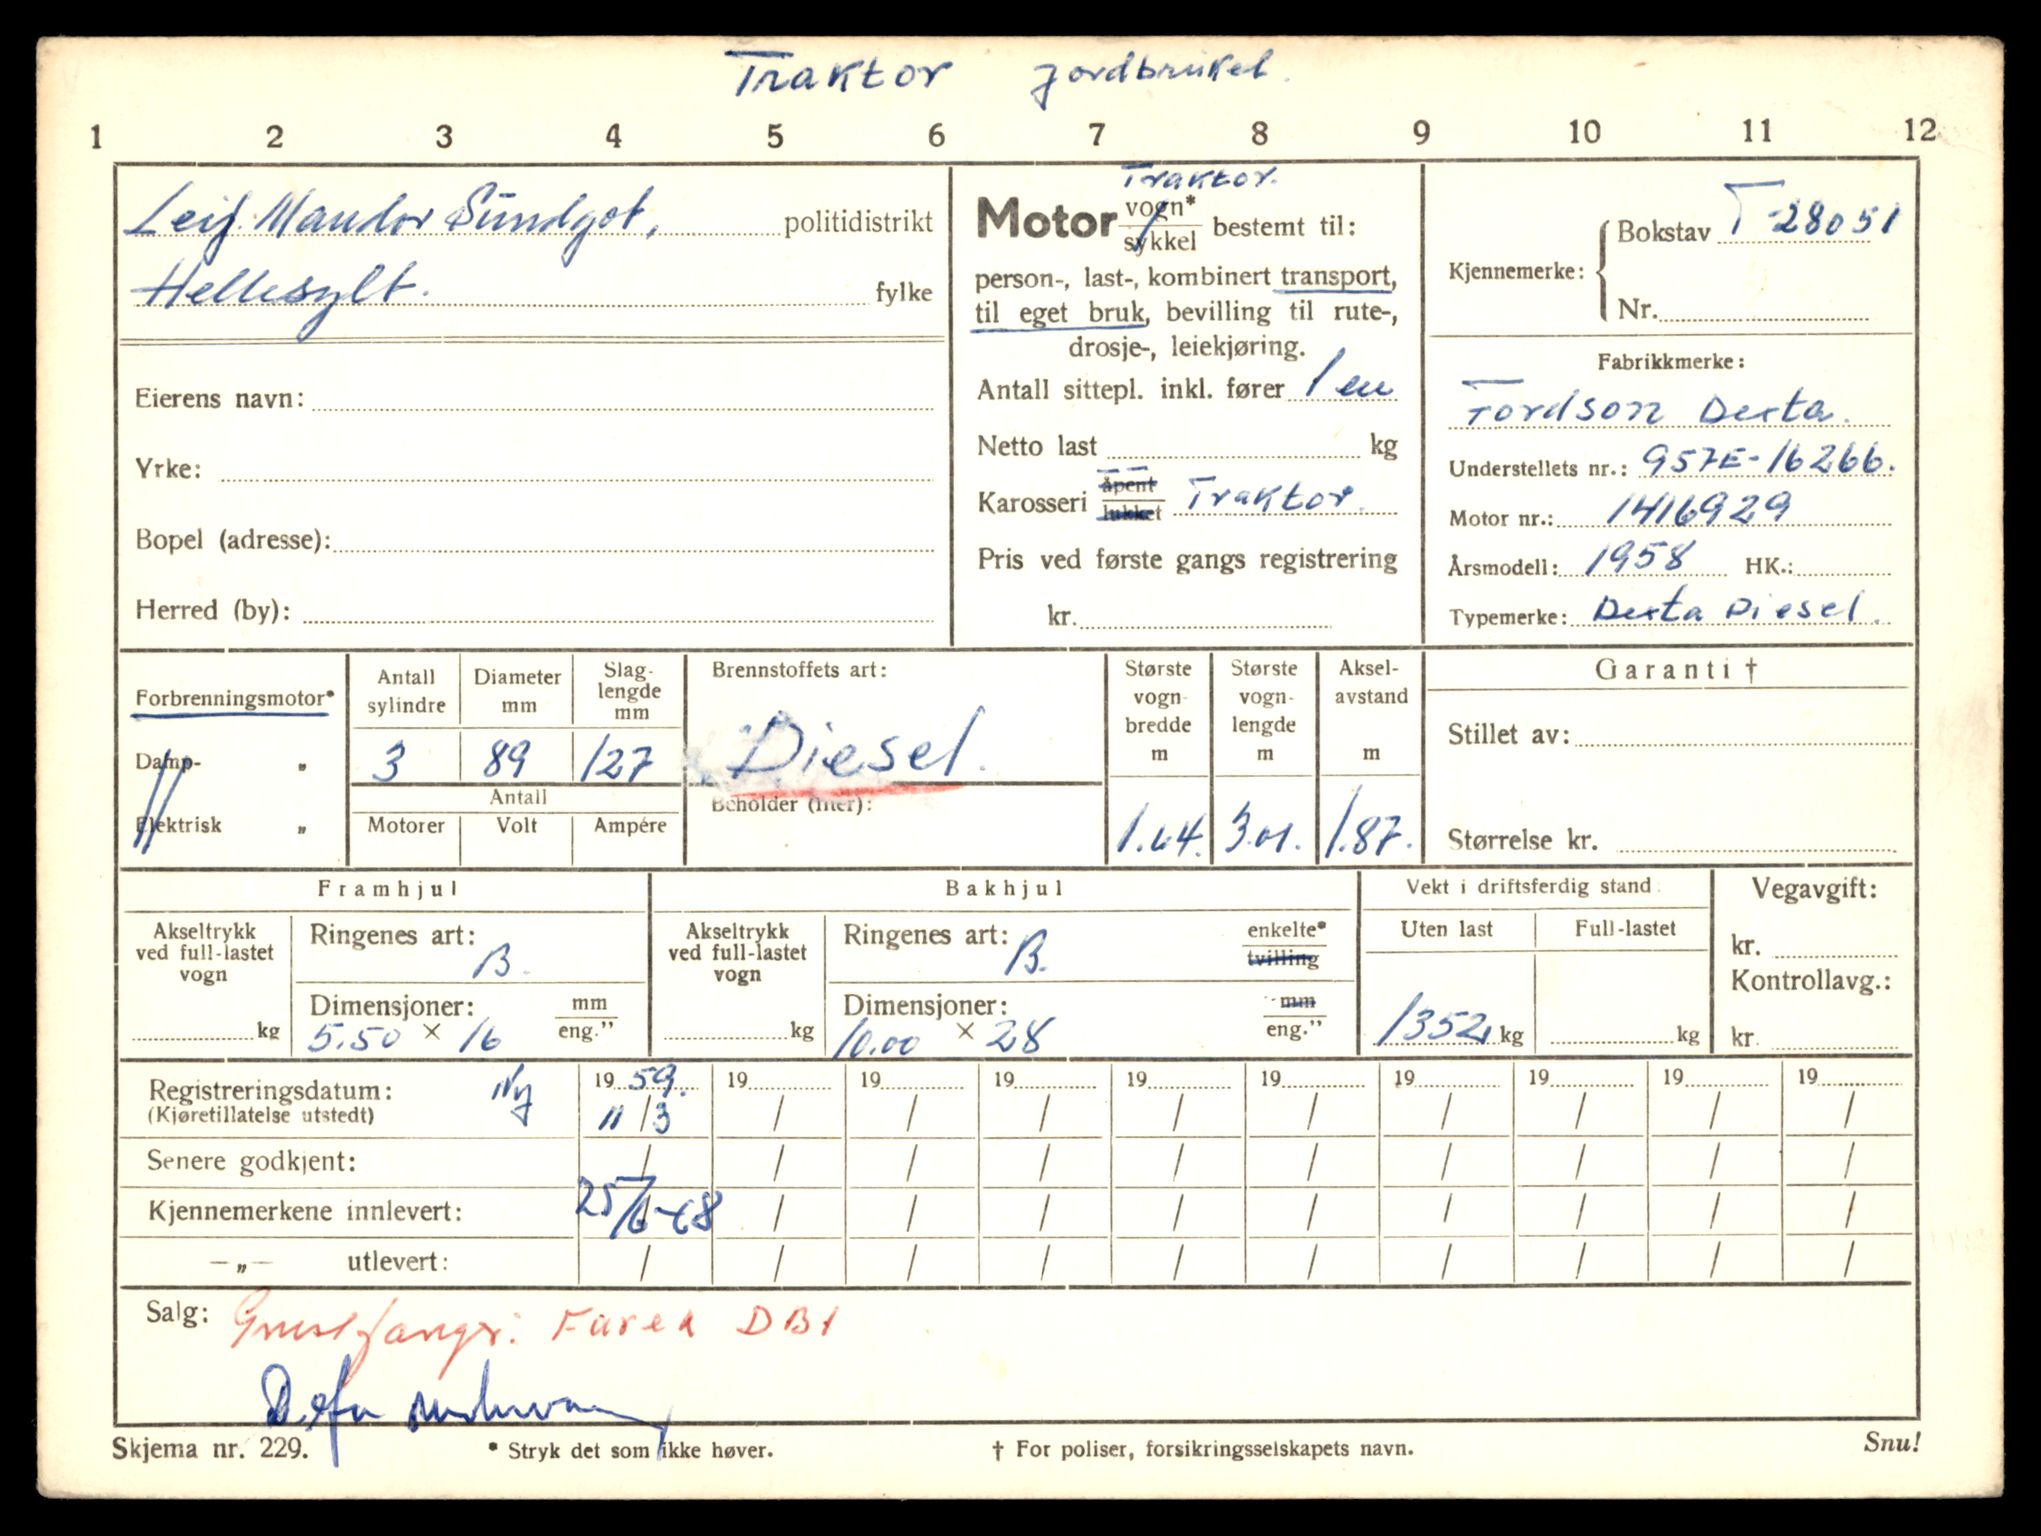 Traktor jordbruket.
1 2 3 4 5 6 7 8 9 10 11 12
Leif Mandor Sundgot, politidistrikt
Hellesylt. fylke
Eierens navn:
Yrke:
Bopel (adresse):
Herred (by):
Traktor.
Motor vogn* / sykkel bestemt til:
person-, last-, kombinert transport,
til eget bruk, bevilling til rute-,
drosje-, leiekjøring.
Antall sittepl. inkl. fører 1 en
Netto last kg
Karosseri åpent / lukket Traktor.
Pris ved første gangs registrering
kr.
Kjennemerke: Bokstav T-28051
Nr.
Fabrikkmerke:
Fordson Dexta.
Understellets nr.: 957E-16266.
Motor nr.: 1416929
Årsmodell: 1958 HK.:
Typemerke: Dexta Diesel.
Forbrenningsmotor*
Damp- „
Elektrisk „
Antall sylindre
Diameter mm
Slag-lengde mm
3 89 127
Antall
Motorer Volt Ampére
Brennstoffets art:
Diesel.
Beholder (liter):
Største vogn-bredde m
1.64.
Største vogn-lengde m
3.01.
Aksel-avstand m
1.87.
Garanti †
Stillet av:
Størrelse kr.
Framhjul
Akseltrykk ved full-lastet vogn
kg
Ringenes art:
B.
Dimensjoner: mm / eng."
5.50 × 16
Bakhjul
Akseltrykk ved full-lastet vogn
kg
Ringenes art: enkelte* / tvilling
B.
Dimensjoner: mm / eng."
10.00 × 28
Vekt i driftsferdig stand
Uten last Full-lastet
1352, kg kg
Vegavgift:
kr.
Kontrollavg.:
kr.
Registreringsdatum: Ny 19 59. 19 19 19 19 19 19 19 19 19
(Kjøretillatelse utstedt) 11/3 / / / / / / / / /
Senere godkjent: / / / / / / / / / /
Kjennemerkene innlevert: 25/6-68 / / / / / / / / /
—„— utlevert: / / / / / / / / / /
Salg: Farea DB1
Skjema nr. 229. * Stryk det som ikke høver. † For poliser, forsikringsselskapets navn. Snu!